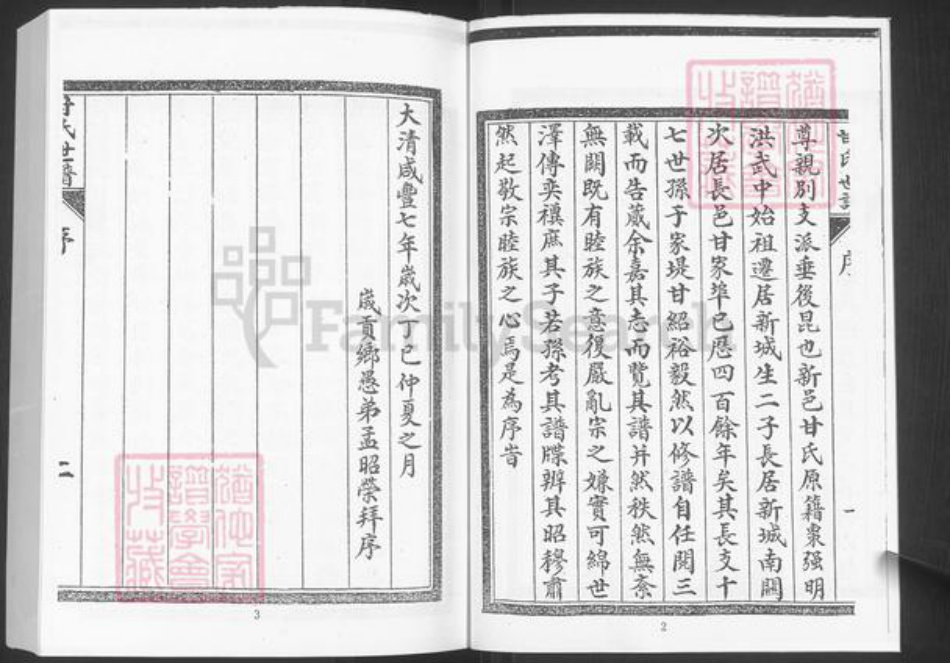 甘氏世譜 序 一
尊親別支派垂後昆也新邑甘氏原籍棗强明
洪武中始祖遷居新城生二子長居新城南關
次居長邑甘家埠已歷四百餘年矣其長支十
七世孫于家堤甘紹裕毅然以修譜自任閱三
載而告蕆余嘉其志而覽其譜井然秩然無紊
無闕既有睦族之意復嚴亂宗之嫌實可綿世
澤傳奕禩庶其子若孫考其譜牒辨其昭穆肅
然起敬宗睦族之心焉是為序旹
2
大清咸豐七年歲次丁巳仲夏之月
歲貢鄉愚弟孟昭榮拜序
甘氏世譜 序 二
3
FamilySearch